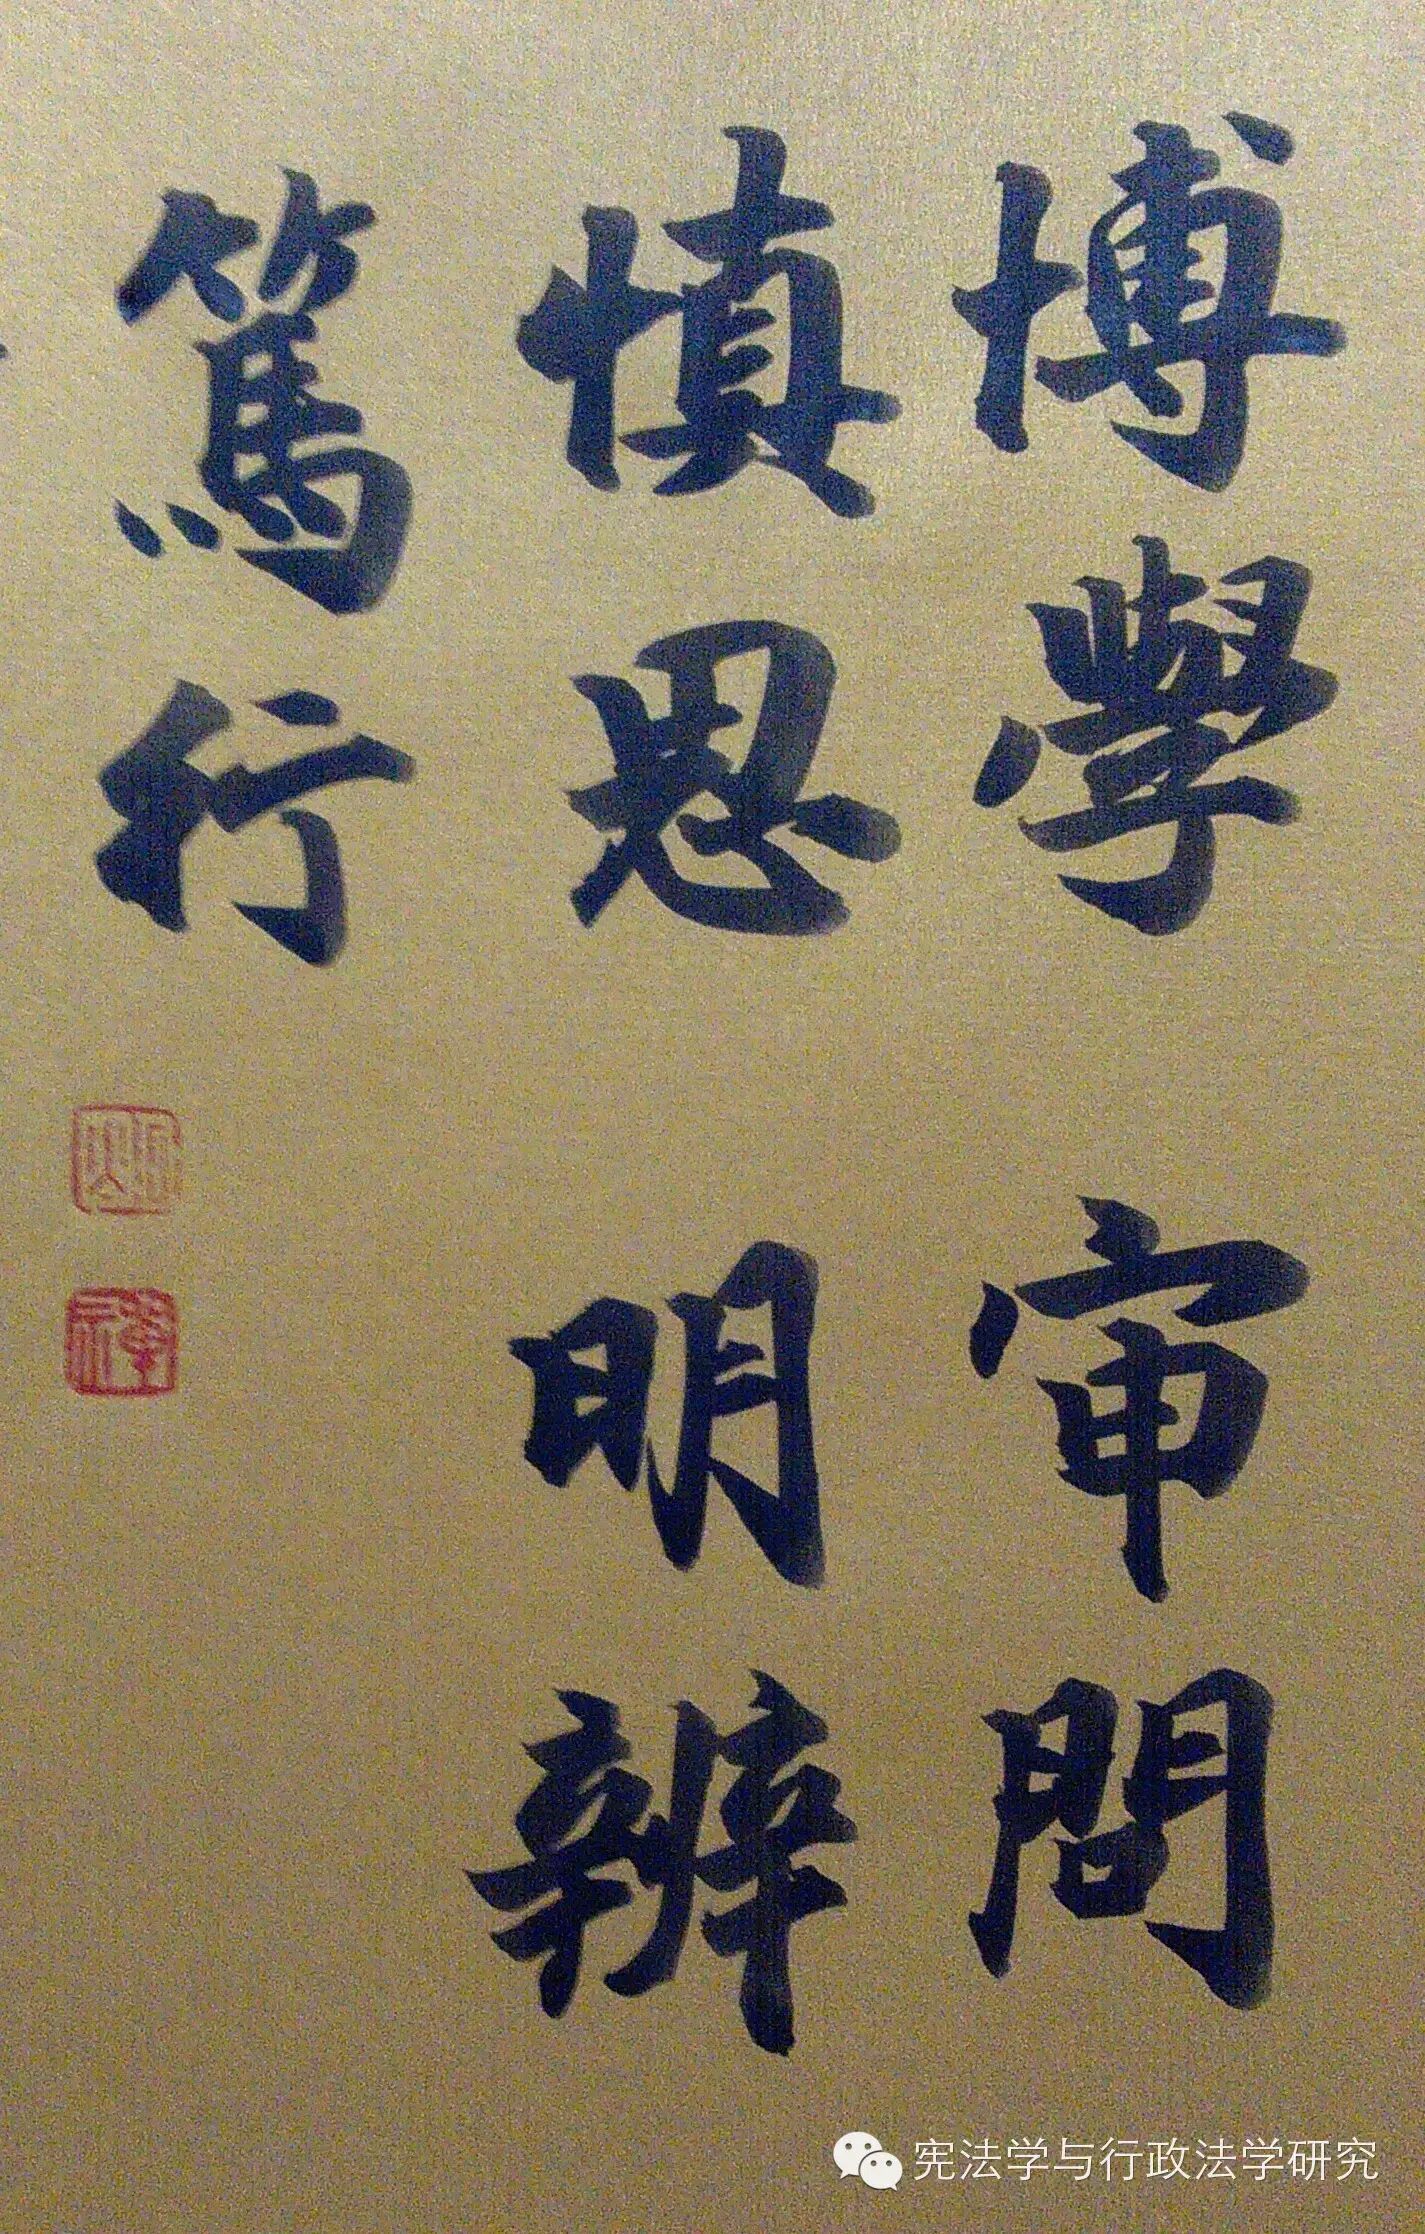 博學 审問
慎思 明辨
篤行
宪法学与行政法学研究